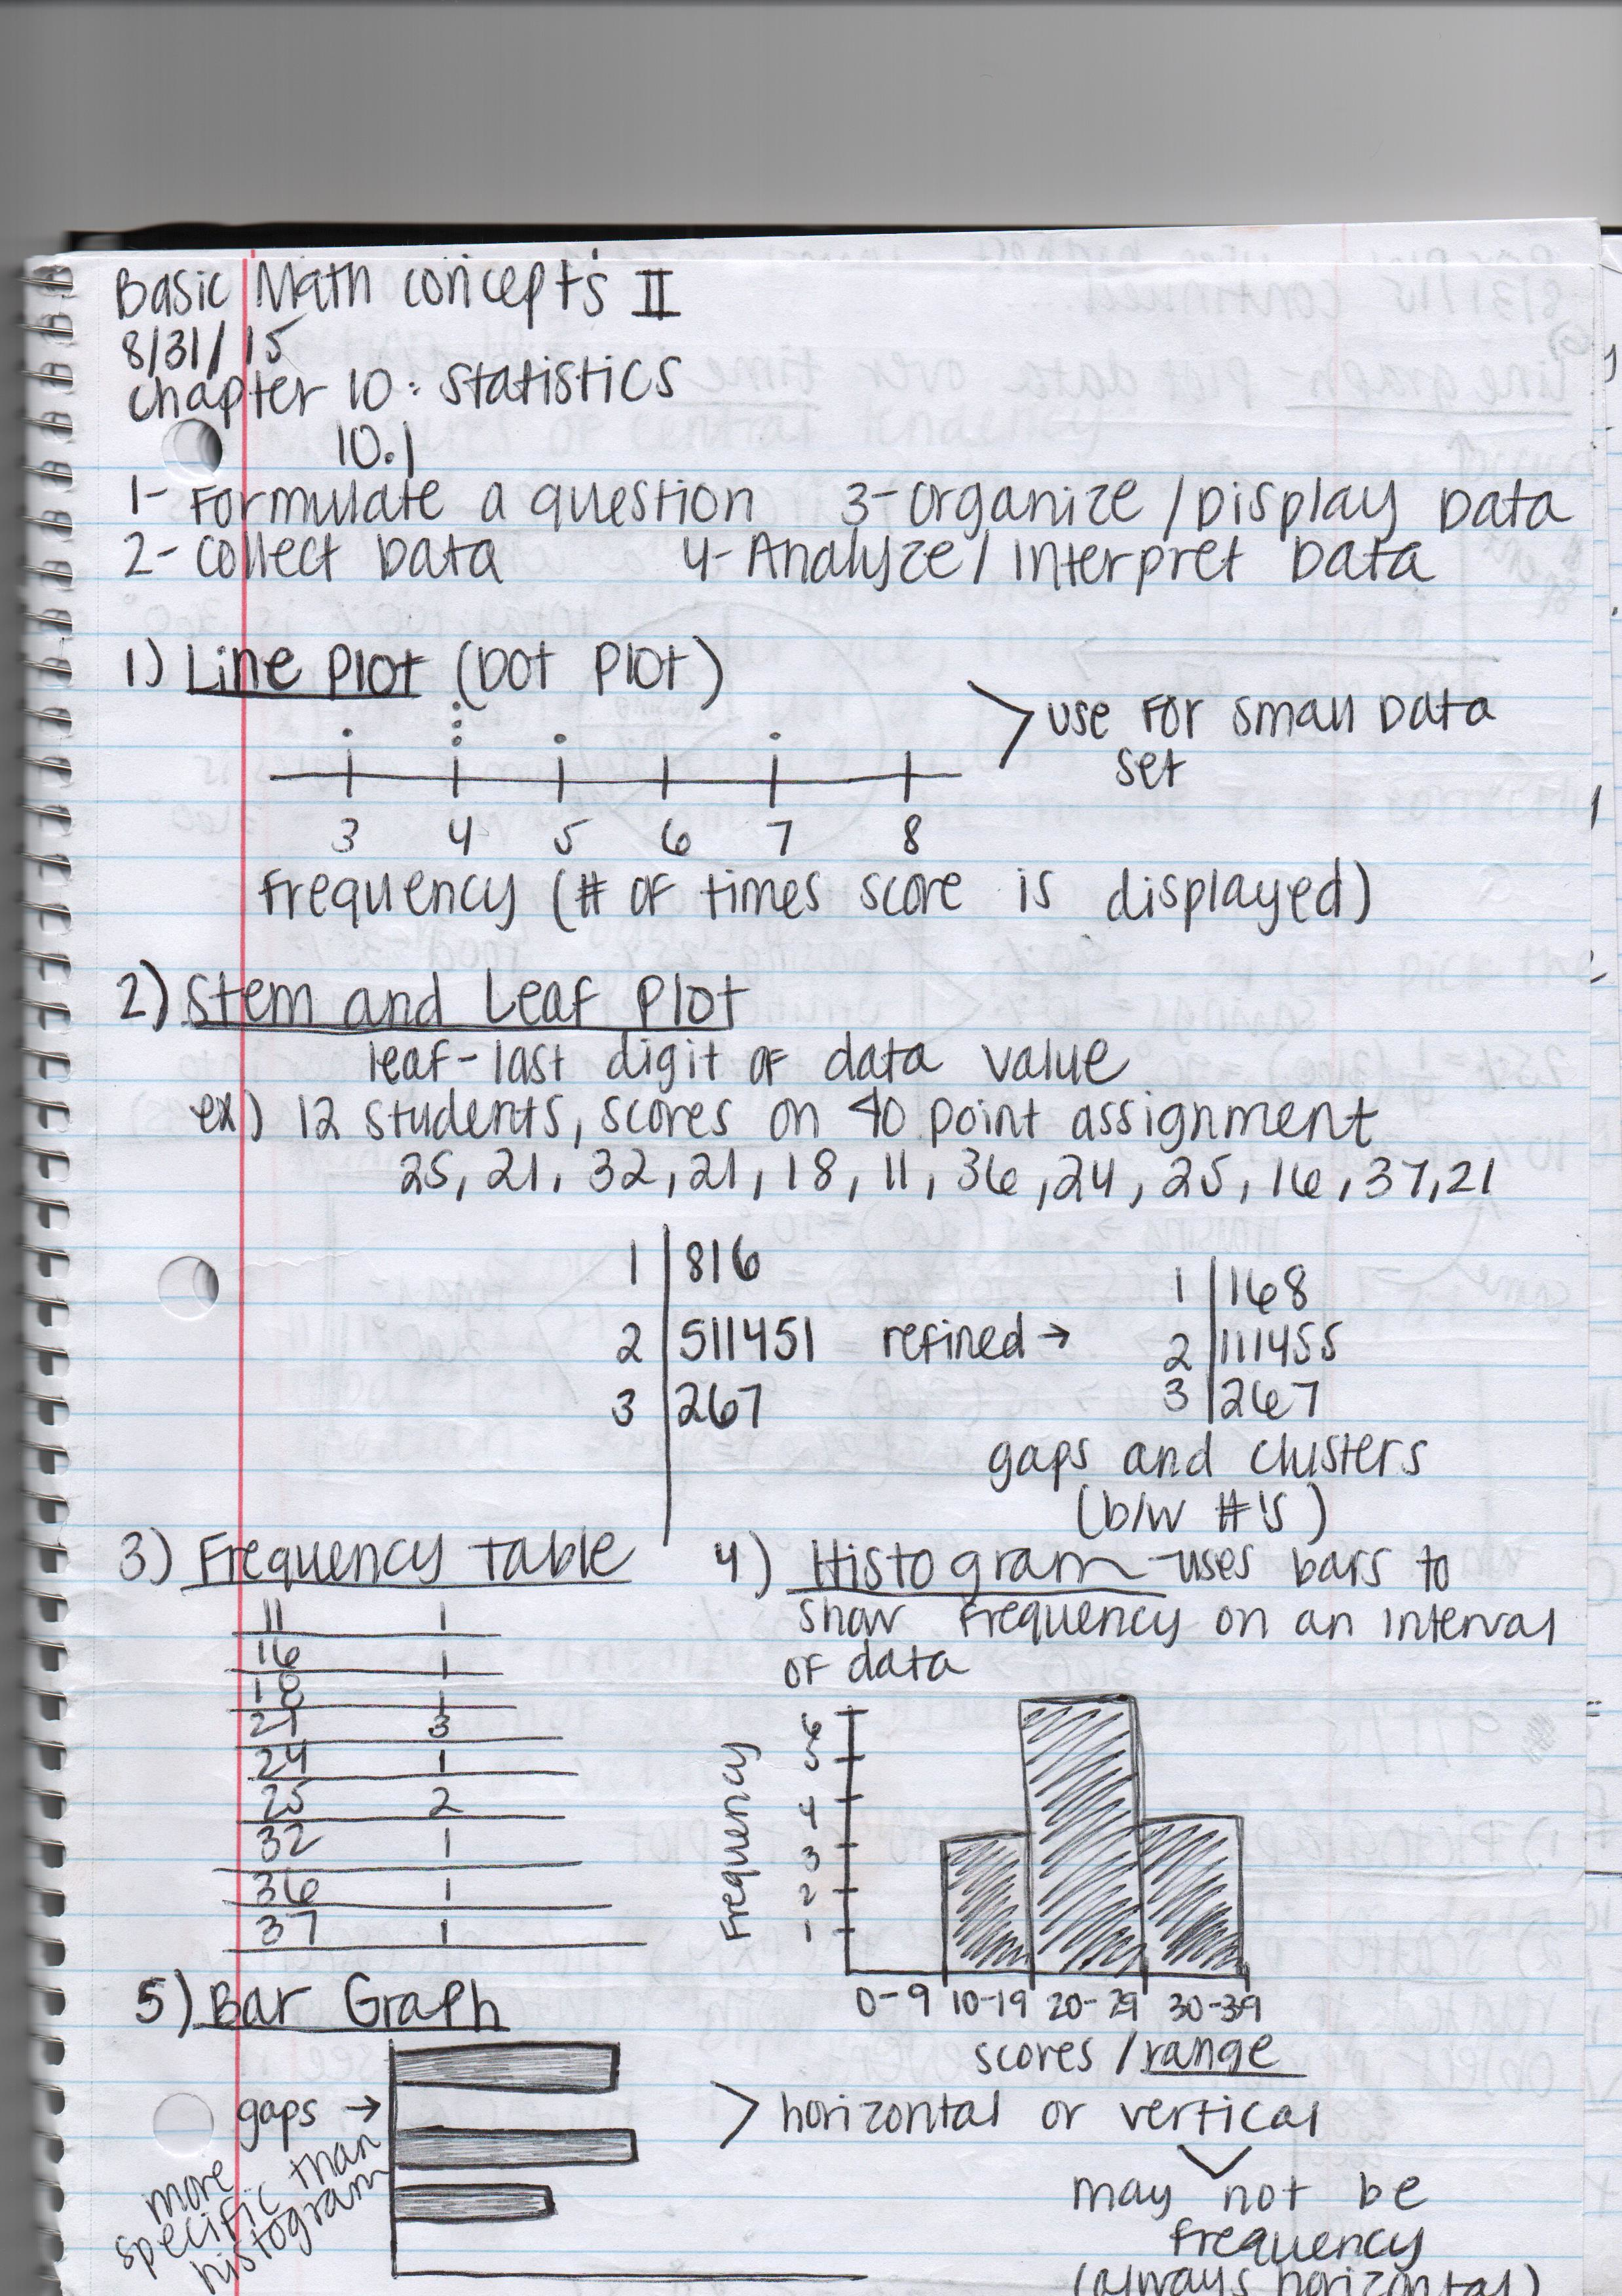 Basic Math concepts II
8/31/15
chapter 10: statistics
10.1
1- Formulate a question 3- Organize / Display Data
2- collect Data 4- Analyze / Interpret Data
1) Line Plot (Dot Plot)
> use for small data
set
3 4 5 6 7 8
frequency (# of times score is displayed)
2) Stem and Leaf Plot
leaf - last digit of data value
ex) 12 students, scores on 40 point assignment
25, 21, 32, 21, 18, 11, 36, 24, 25, 16, 37, 21
1 | 816
2 | 511451
3 | 267
refined →
1 | 168
2 | 111455
3 | 267
gaps and clusters
(b/w #'s)
3) Frequency Table
11 1
16 1
18 1
21 3
24 1
25 2
32 1
36 1
37 1
4) Histogram - uses bars to
show frequency on an interval
of data
Frequency
6
5
4
3
2
1
0-9 10-19 20-29 30-39
scores / range
5) Bar Graph
gaps →
more
specific than
histogram
> horizontal or vertical
may not be
frequency
(always horizontal)